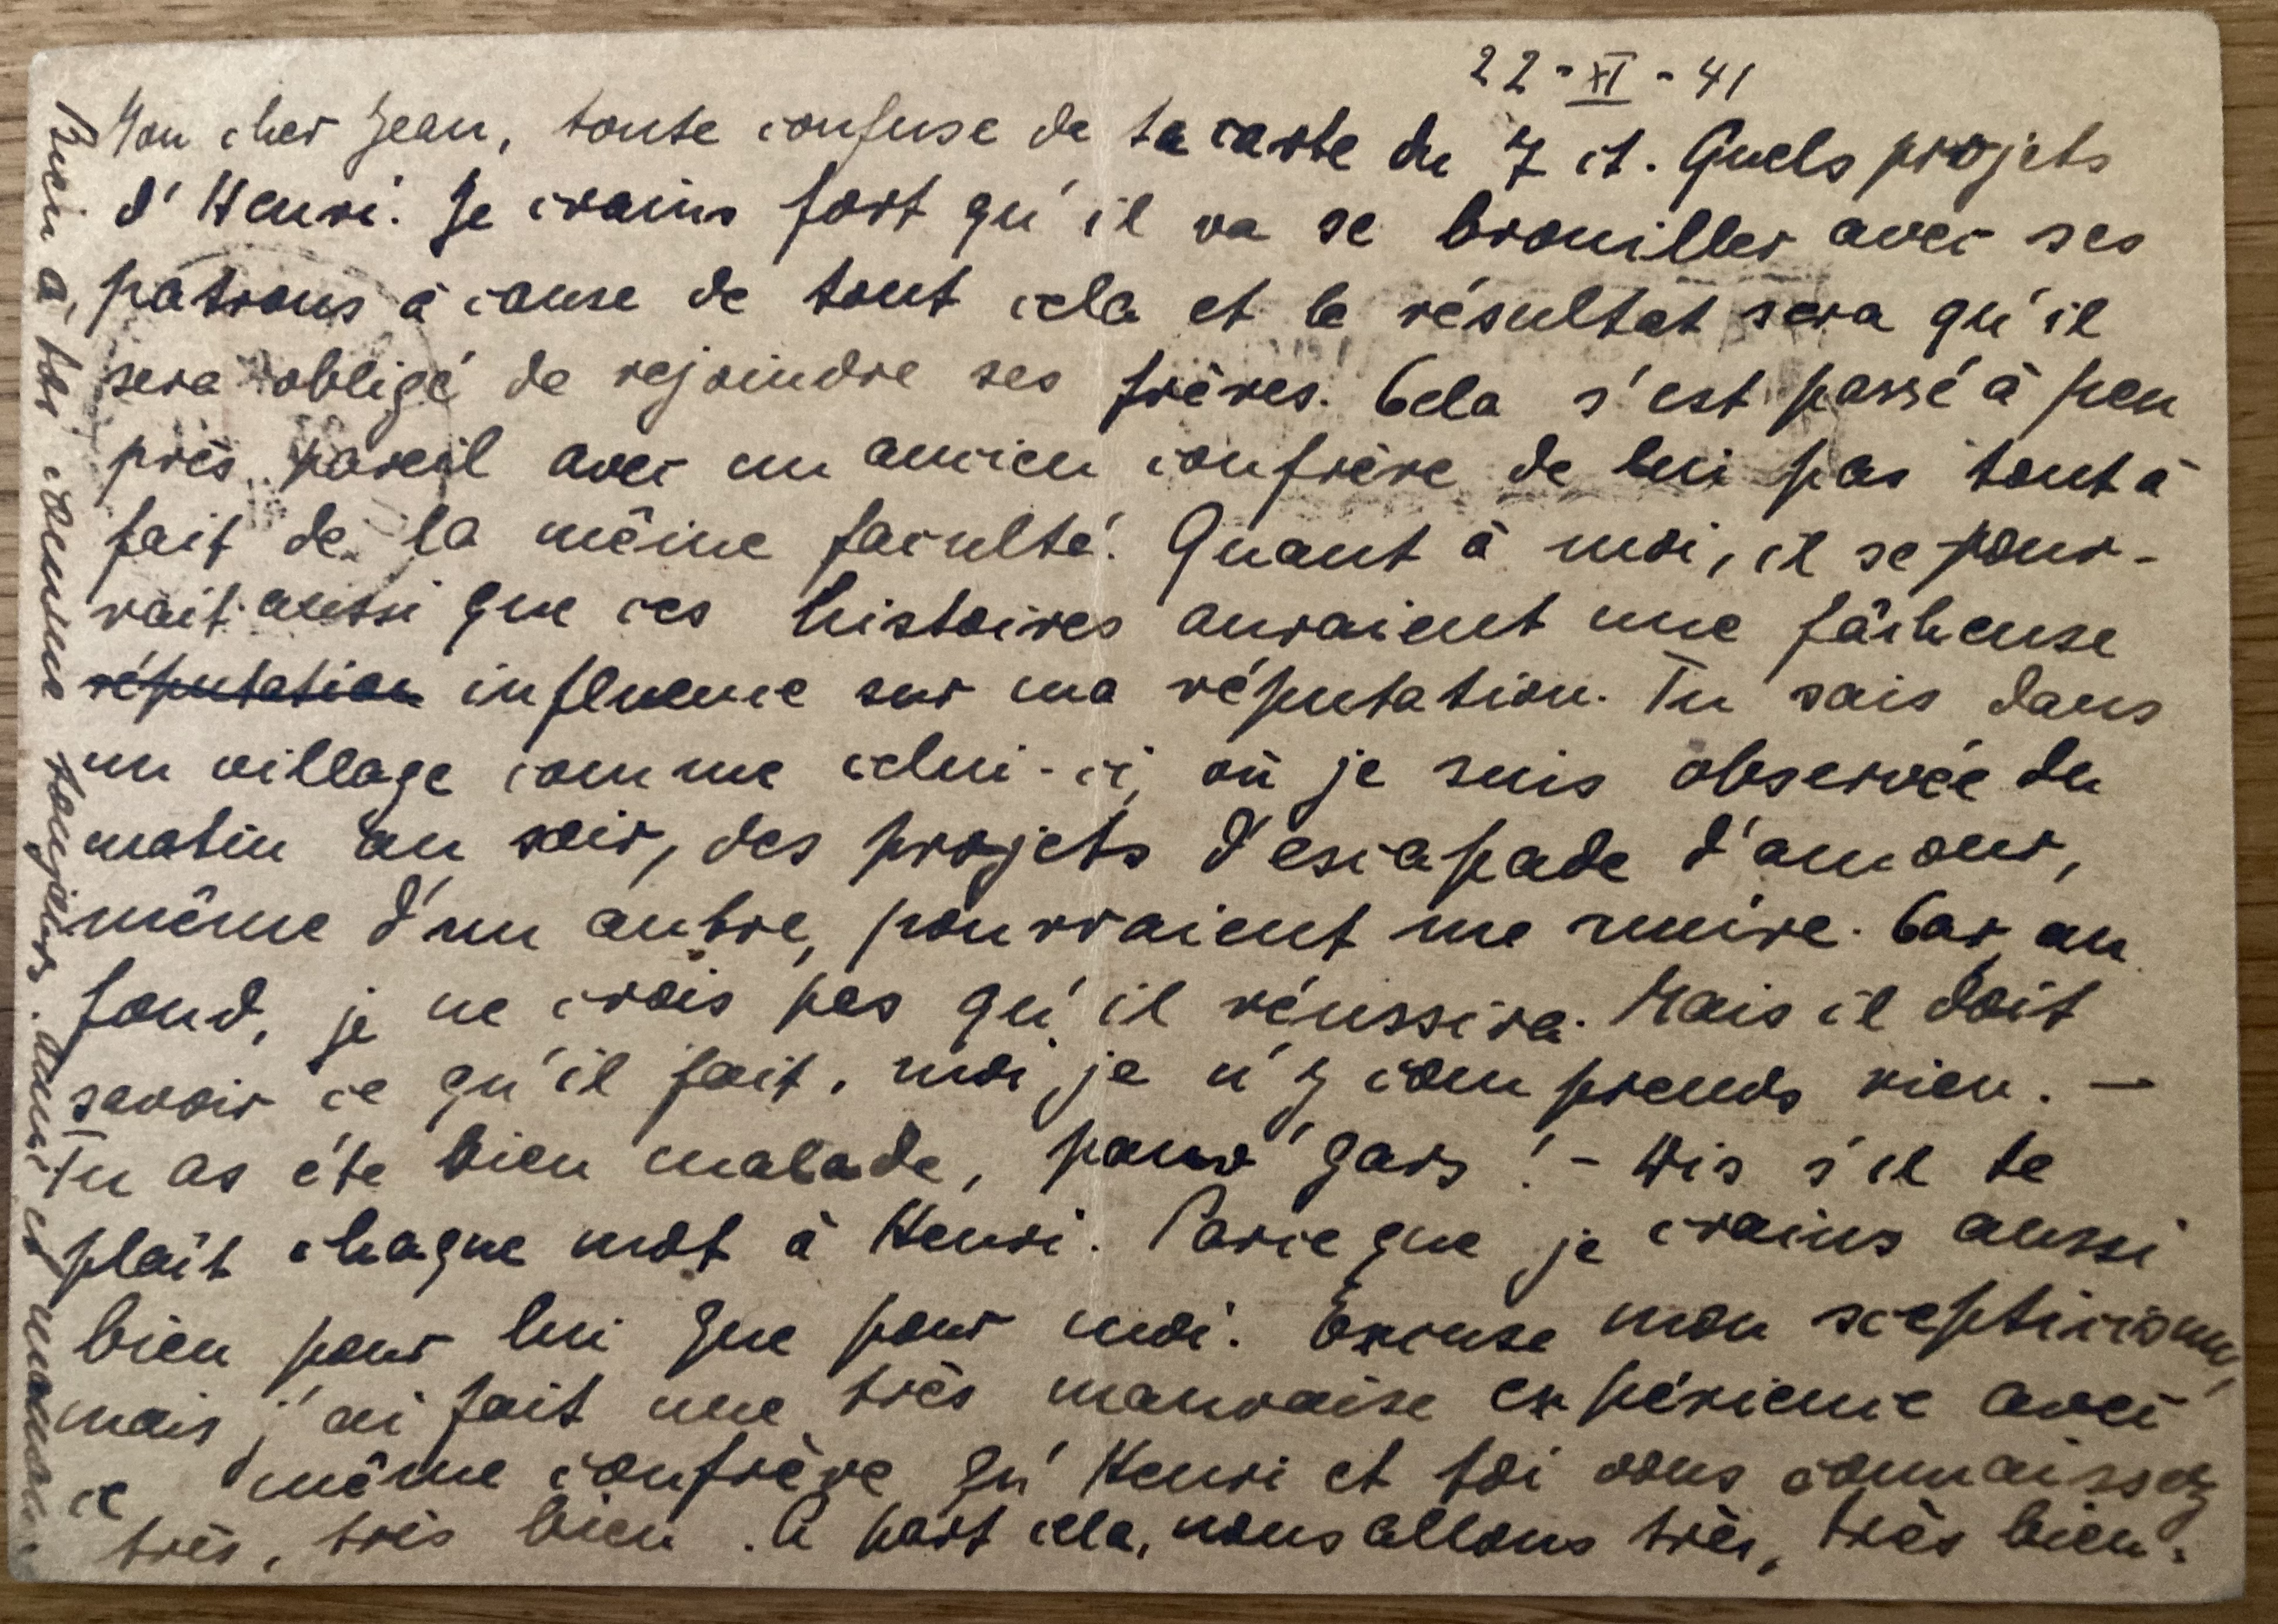 22-XI-41
Mon cher Jean, toute confuse de ta carte du 7 ct. Quels projets
d'Henri. Je crains fort qu'il va se brouiller avec ses
patrons à cause de tout cela et le résultat sera qu'il
sera obligé de rejoindre ses frères. Cela s'est passé à peu
près pareil avec un ancien confrère de lui pas tout à
fait de la même faculté. Quant à moi, il se pour-
rait aussi que ces histoires auraient une fâcheuse
réputation influence sur ma réputation. Tu sais dans
un village comme celui-ci, où je suis observée du
matin au soir, des projets d'escapade d'amour,
même d'un autre, pourraient me nuire. Car, au
fond, je ne crois pas qu'il réussira. Mais il doit
savoir ce qu'il fait, moi je n'y comprends rien. —
Tu as été bien malade, pauv' gars! - Dis s'il te
plaît chaque mot à Henri. Parce que je crains aussi
bien pour lui que pour moi. Excuse mon scepticisme,
mais j'ai fait une très mauvaise expérience avec
ce même confrère qu'Henri et toi vous connaissez
très, très bien. A part cela, nous allons très, très bien.
Bien à toi comme toujours. Dani et maman.